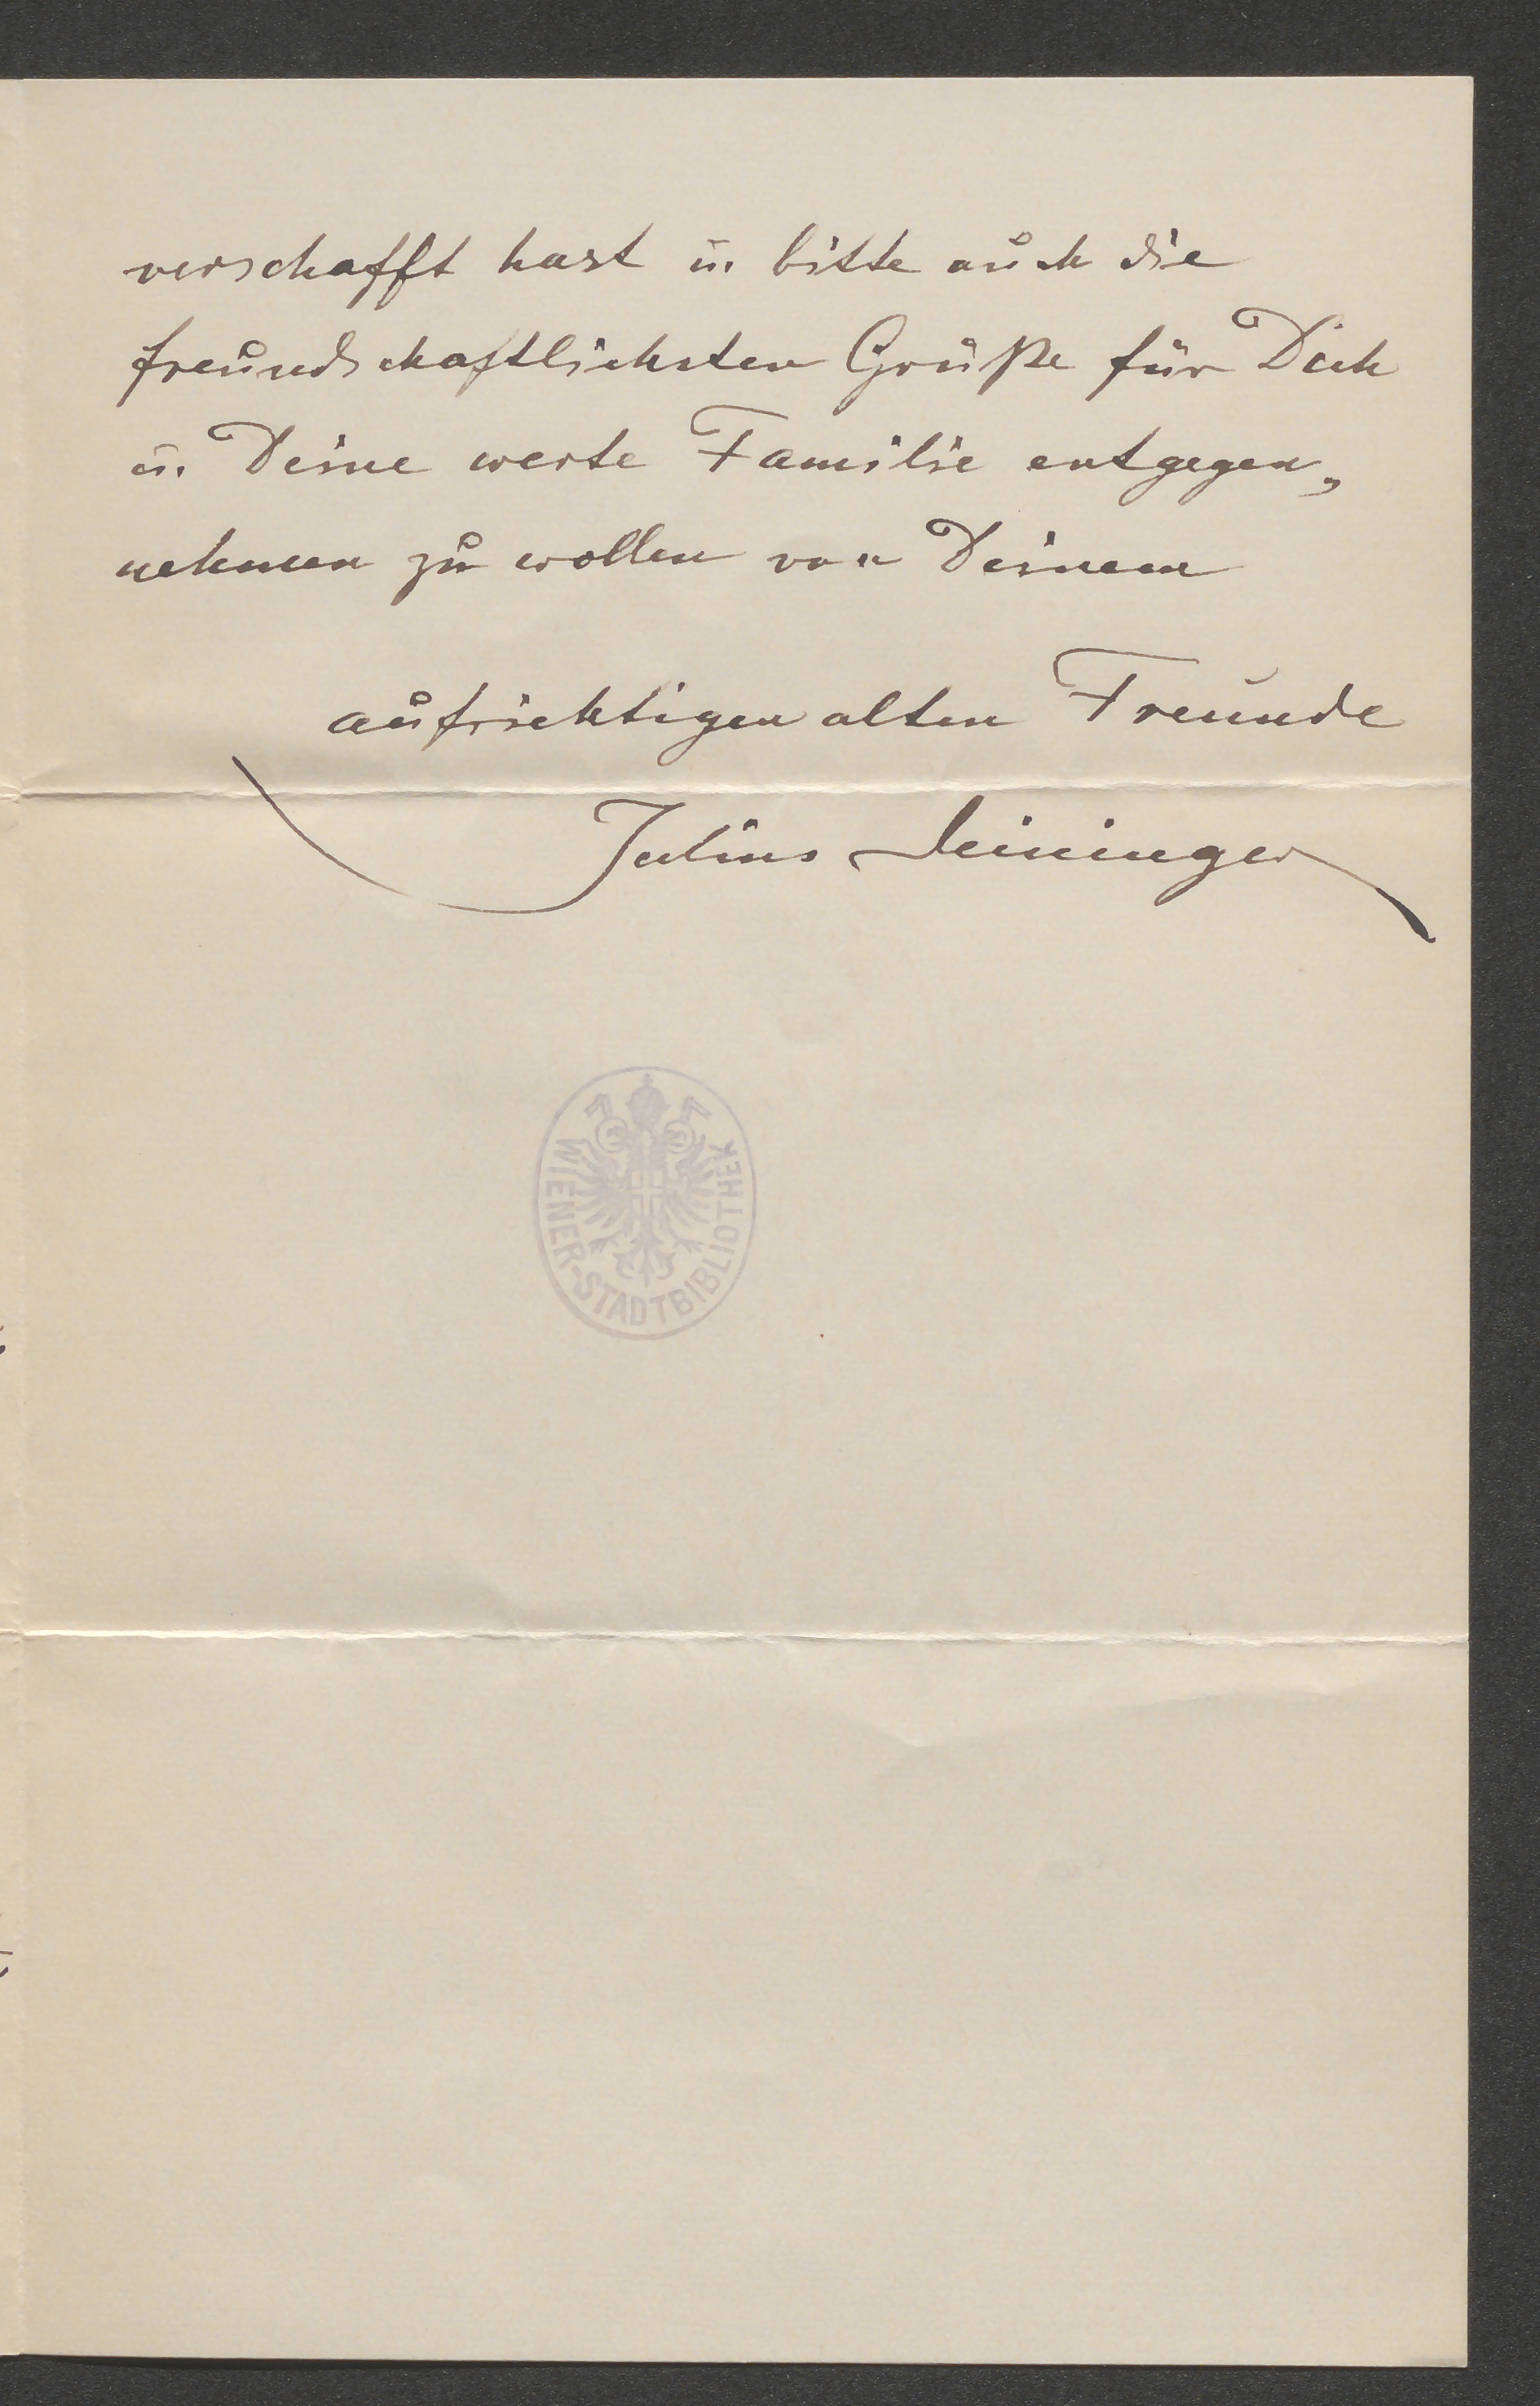 verschafft hast u. bitte auch die
freundschaftlichsten Grüße für Dich
u. Deine werte Familie entgegen„
nehmen zu wollen von Deinem
aufrichtigen alten Freunde
Julius Deininger
WIENER-STADTBIBLIOTHEK